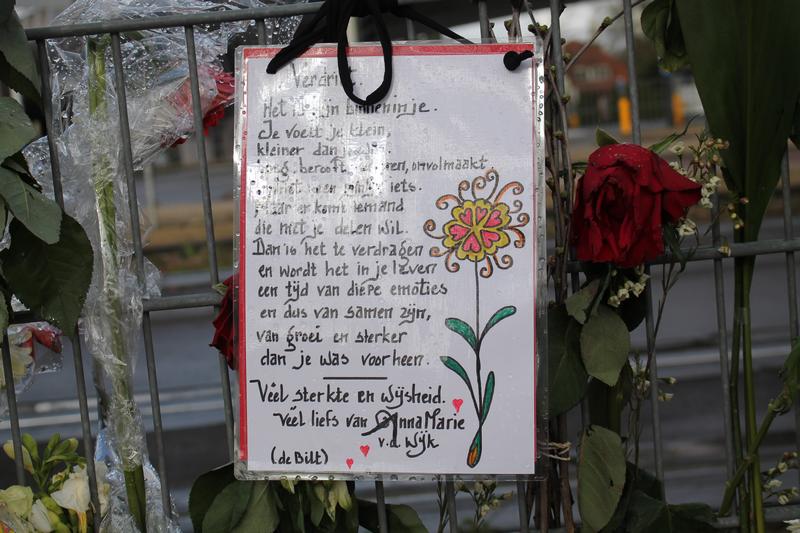 Verdriet.
Het is
Je voelt je klein,
kleiner dan
onvolmaakt
iets.
Maar er komt iemand
die met je delen wil.
Dan is het te verdragen
en wordt het in je leven
een tijd van diepe emoties
en dus van samen zijn,
van groei en sterker
dan je was voorheen.
Véél sterkte en wijsheid.
véél liefs van AnnaMarie
v.d. Wijk
(de Bilt)